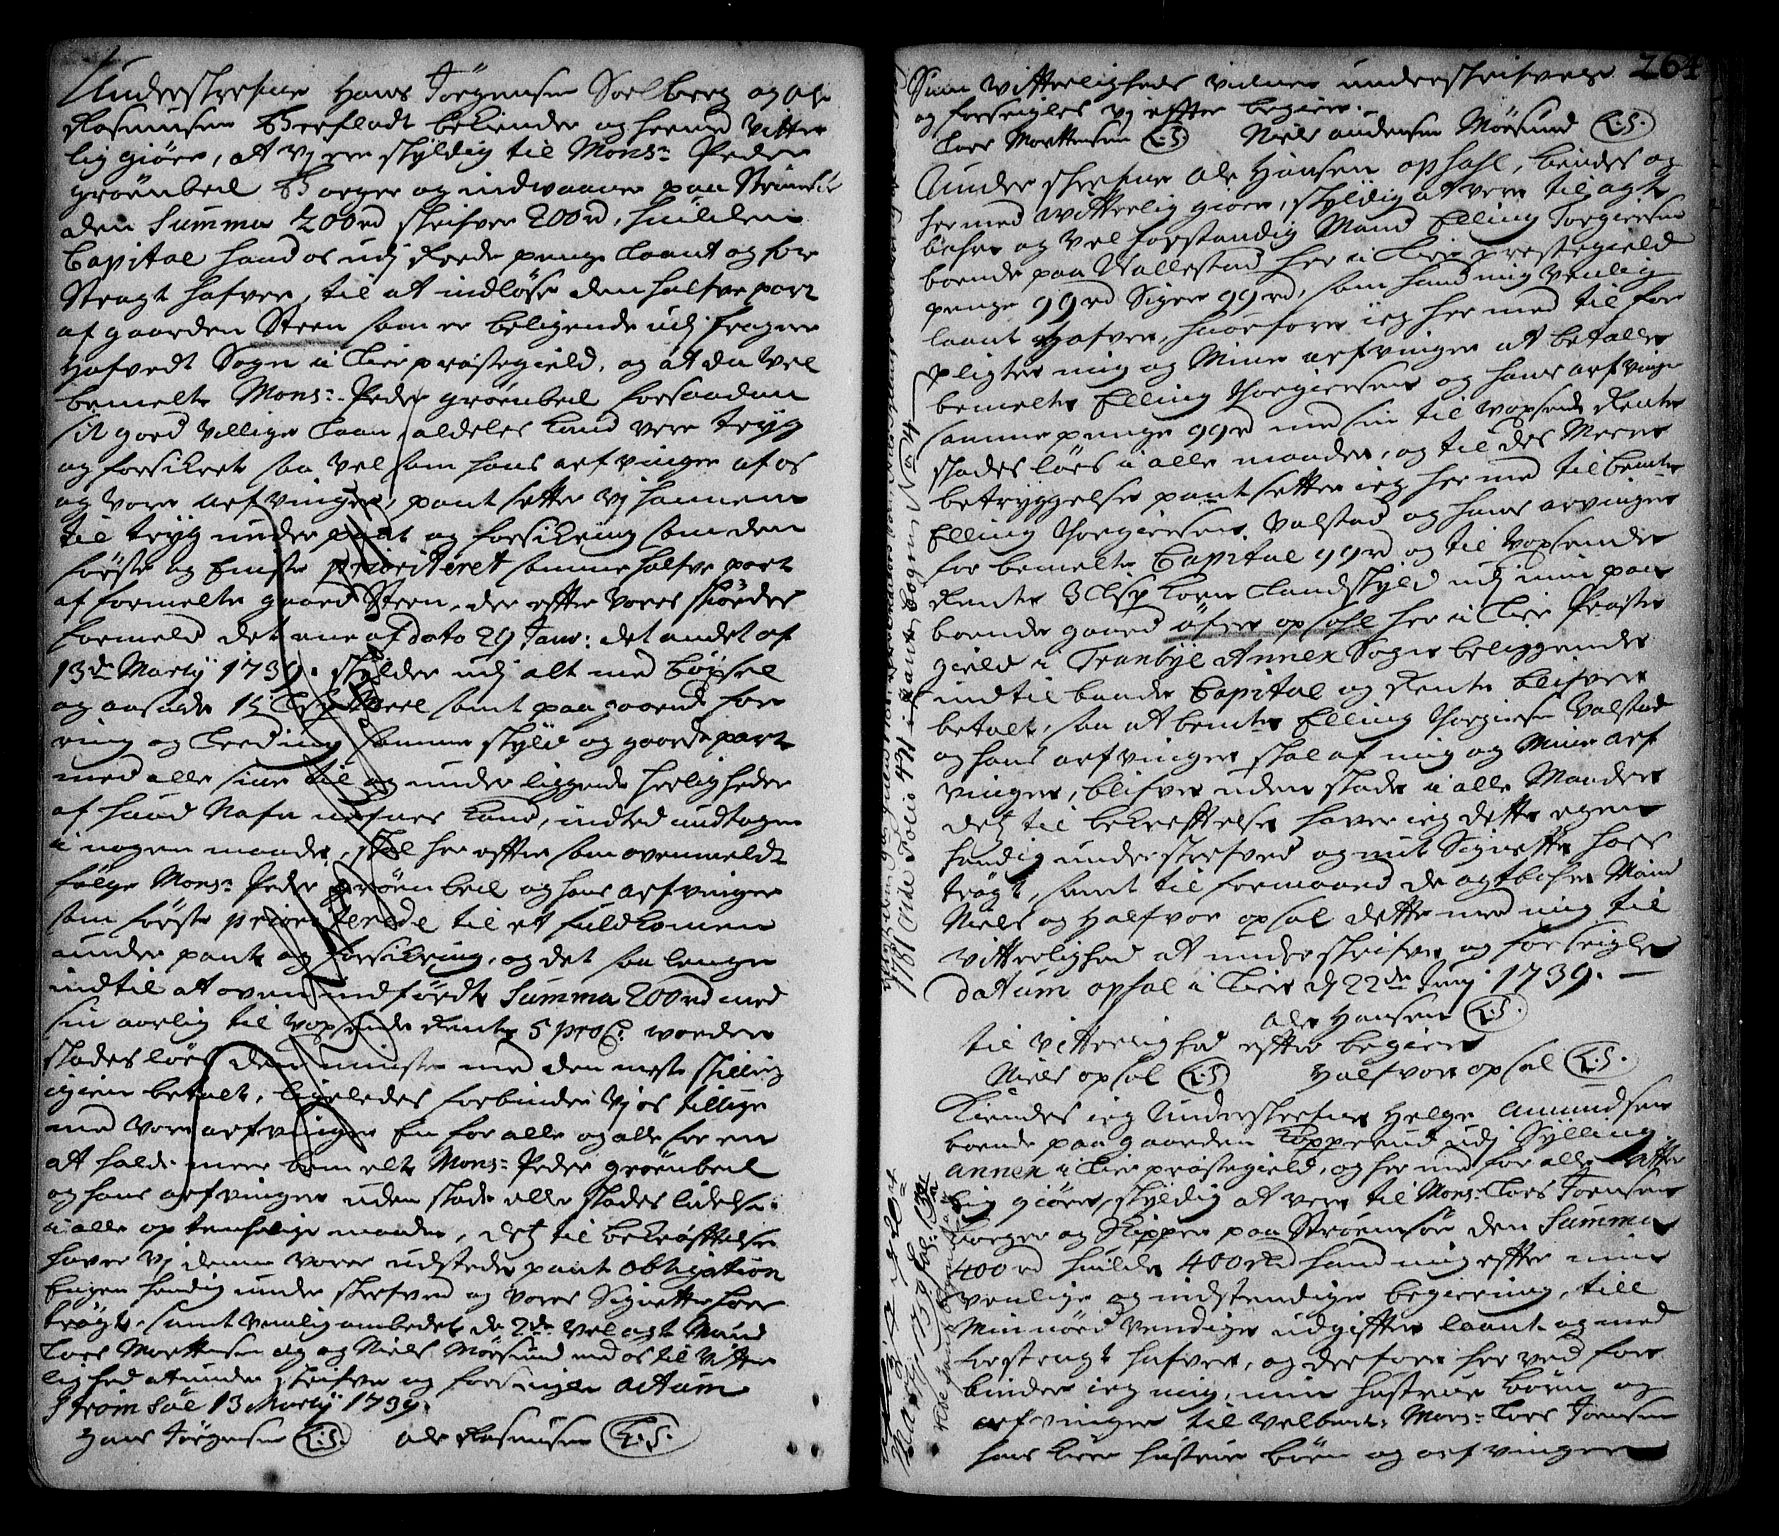 Underskrefne Hans Jörgensen Soelberg og Ole
Rasmusen Berfladt bekiender og hermed vitter
lig giöre, at vj ere skyldig til Mons:r Peder
gröenbeil Borger og indvaaner paa Strömsöe
den Summa 200rd skrifver 200rd, huilchen
Capital hand os udj Rede penge Laant og for
Stragt hafver, til at indlöse den halfve part
af gaarden Steen som er beligende udj Frogner
Hofvedt Sogn i Lier præstegield, og at da vel
bemelte Mons:r Peder gröenbeil for saadan
sit goed villige Laan aldeles kand vere tryg
og forsikret saa vel som hans arfvinger af os
og vore arfvinger, pantsetter vj hannem
til tryg under pant og forsikring som den
förste og Eniste prioriteret samme halfve part
af formelte gaard Steen, der effter vores skiöders
formeld det ene af dato 29 Janv: det andet af
13de Martij 1739. skylder udj alt med böxsel
og aasæde 15 Lispd meel samt paagaaende foe
ring og Leeding samme skyld og gaardepart
med alle sine til og under liggende herligheder
af huad Nafn nefnes kand, intet undtagen
i nogen maade, skal her effter som ovenmeldt
fölge Mons:r Peder gröenbeil og hans arfvinger
som förste prioriterede til et fuldkomen
under pant og forsikring, og det saa lenge
indtil at oven indfördte Summa 200rd med
sin aarlig til voxsende Rente 5 proC:to worder
skadeslöes den minste med den meste skilling
igien betalt, ligeledes forbinder vj os tillige
med vore arfvinger En for alle og alle for en
at holde meer bemelte Mons:r Peder gröenbeil
og hans arfvinger uden skade eller skades lidelse
i alle optenkelige maader, Dets til bekræfftelse
haver vj denne vores udstedde pant obligation
Egen hendig under skrefved og vores Signetter hoes
trögt, samt venlig ombedet de 2de Velagt Mænd
Lars Mortensen og Niels Mörsund med os til vitter
lighed at underskrifve og forseigle Actum
Strömsöe 13 Martij 1739.
Hans Jörgensen (L:S) Ole Rasmusen (L:S)
264
Som vitterligheds vidner underskrifver
og forseigles vj effter begier.
Lars Morttensen (L:S) Niels andersen Mörsund (L:S)
Under skrefne Ole Hansen opsahl, kiendes og
hermed vitterlig giör, skyldig at vere til agt
bahre og vel forstandig Mand Elling Torgiersen
boende paa Wallestad her i Lier præstegield
penge 99rd Siger 99rd, som hand mig venlig
laant hafver, huorfore ieg her med til for
pligter mig og Mine arfvinger at betalle
bemelte Elling Thorgiersen og hans arfvinger
samme penge 99rd med sin til voxsende Rente
skadeslöes i alle maader, og til des Meere
betryggelse pantsetter ieg hermed til bemte
Elling Thorgiersen Valstad og hans arvinger
for bemelte Capital 99rd og til voxsende
Rente 3 Lisp Korn Landskyld udj min paa
boende gaard öfver opsahl her i Lier Præste
gield i Tranbye Annex Sogn beliggende
indtil baade Capital og Rente blifver
betalt, saa at bemte Elling Thorgiersen Valstad
og hans arfvinger skal af mig og Mine arf
vinger, blifve uden skade i alle Maader
Dets til bekrefftelse haver ieg dette egen
hændig underskrefved og mit Signette hoes
trögt, samt til formaaed de agtbahre Mænd
Niels og Halfvor opsal dette med mig til
vitterlighed at underskrifve og forseigle
datum opsal i Lier d 22de Junj 1739.
Ole Hansen (L:S)
til vitterlighed effter begiering
Niels opsal (L:S) Halfvor opsal (L:S)
Kiendes ieg Underskrefne Helge Amundsen
boende paa gaarden Kopperud udj Sylling
annex i Lier præstegield, og her med for alle vitter
lig giöre, skyldig at vere til Mons:r Lars Joensen
borger og Skipper paa Strömsöe den Summa
400rd huilche 400rd hand mig effter min
venlige og indstendige begiering, till
Min nödvendige udgiffter laant og med
forstragt hafver, og derfore herved for
binder ieg mig, min hustrue börn og
arfvinger til velbemte Mons:r Lars Joensen
hans kiere hustrue börn og arfvinger
1781 Vide Folio 471 i Pante bogen No 4